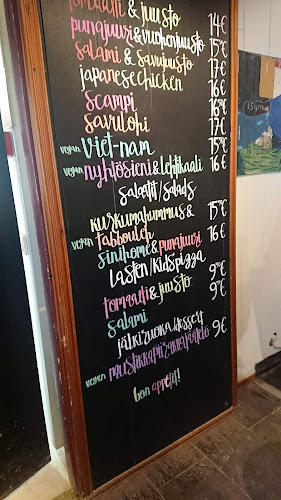 tomaatti & juusto 14€
punajuuri & vuohenjuusto 15€
salami & savujuusto 17€
japanese chicken 16€
scampi 16€
savulohi 17€
vegan viet-nam 15€
vegan nyhtösieni & lehtikaali 16€
salaatit / salads
kurkumahummus & 15€
vegan tabbouleh
sinihome & punajuuri 16€
lasten / kids pizza
tomaatti & juusto 9€
salami 9€
jälkiruoka / dessert
vegan mustikkapiirakkajäätelö 9€
bon appétit!